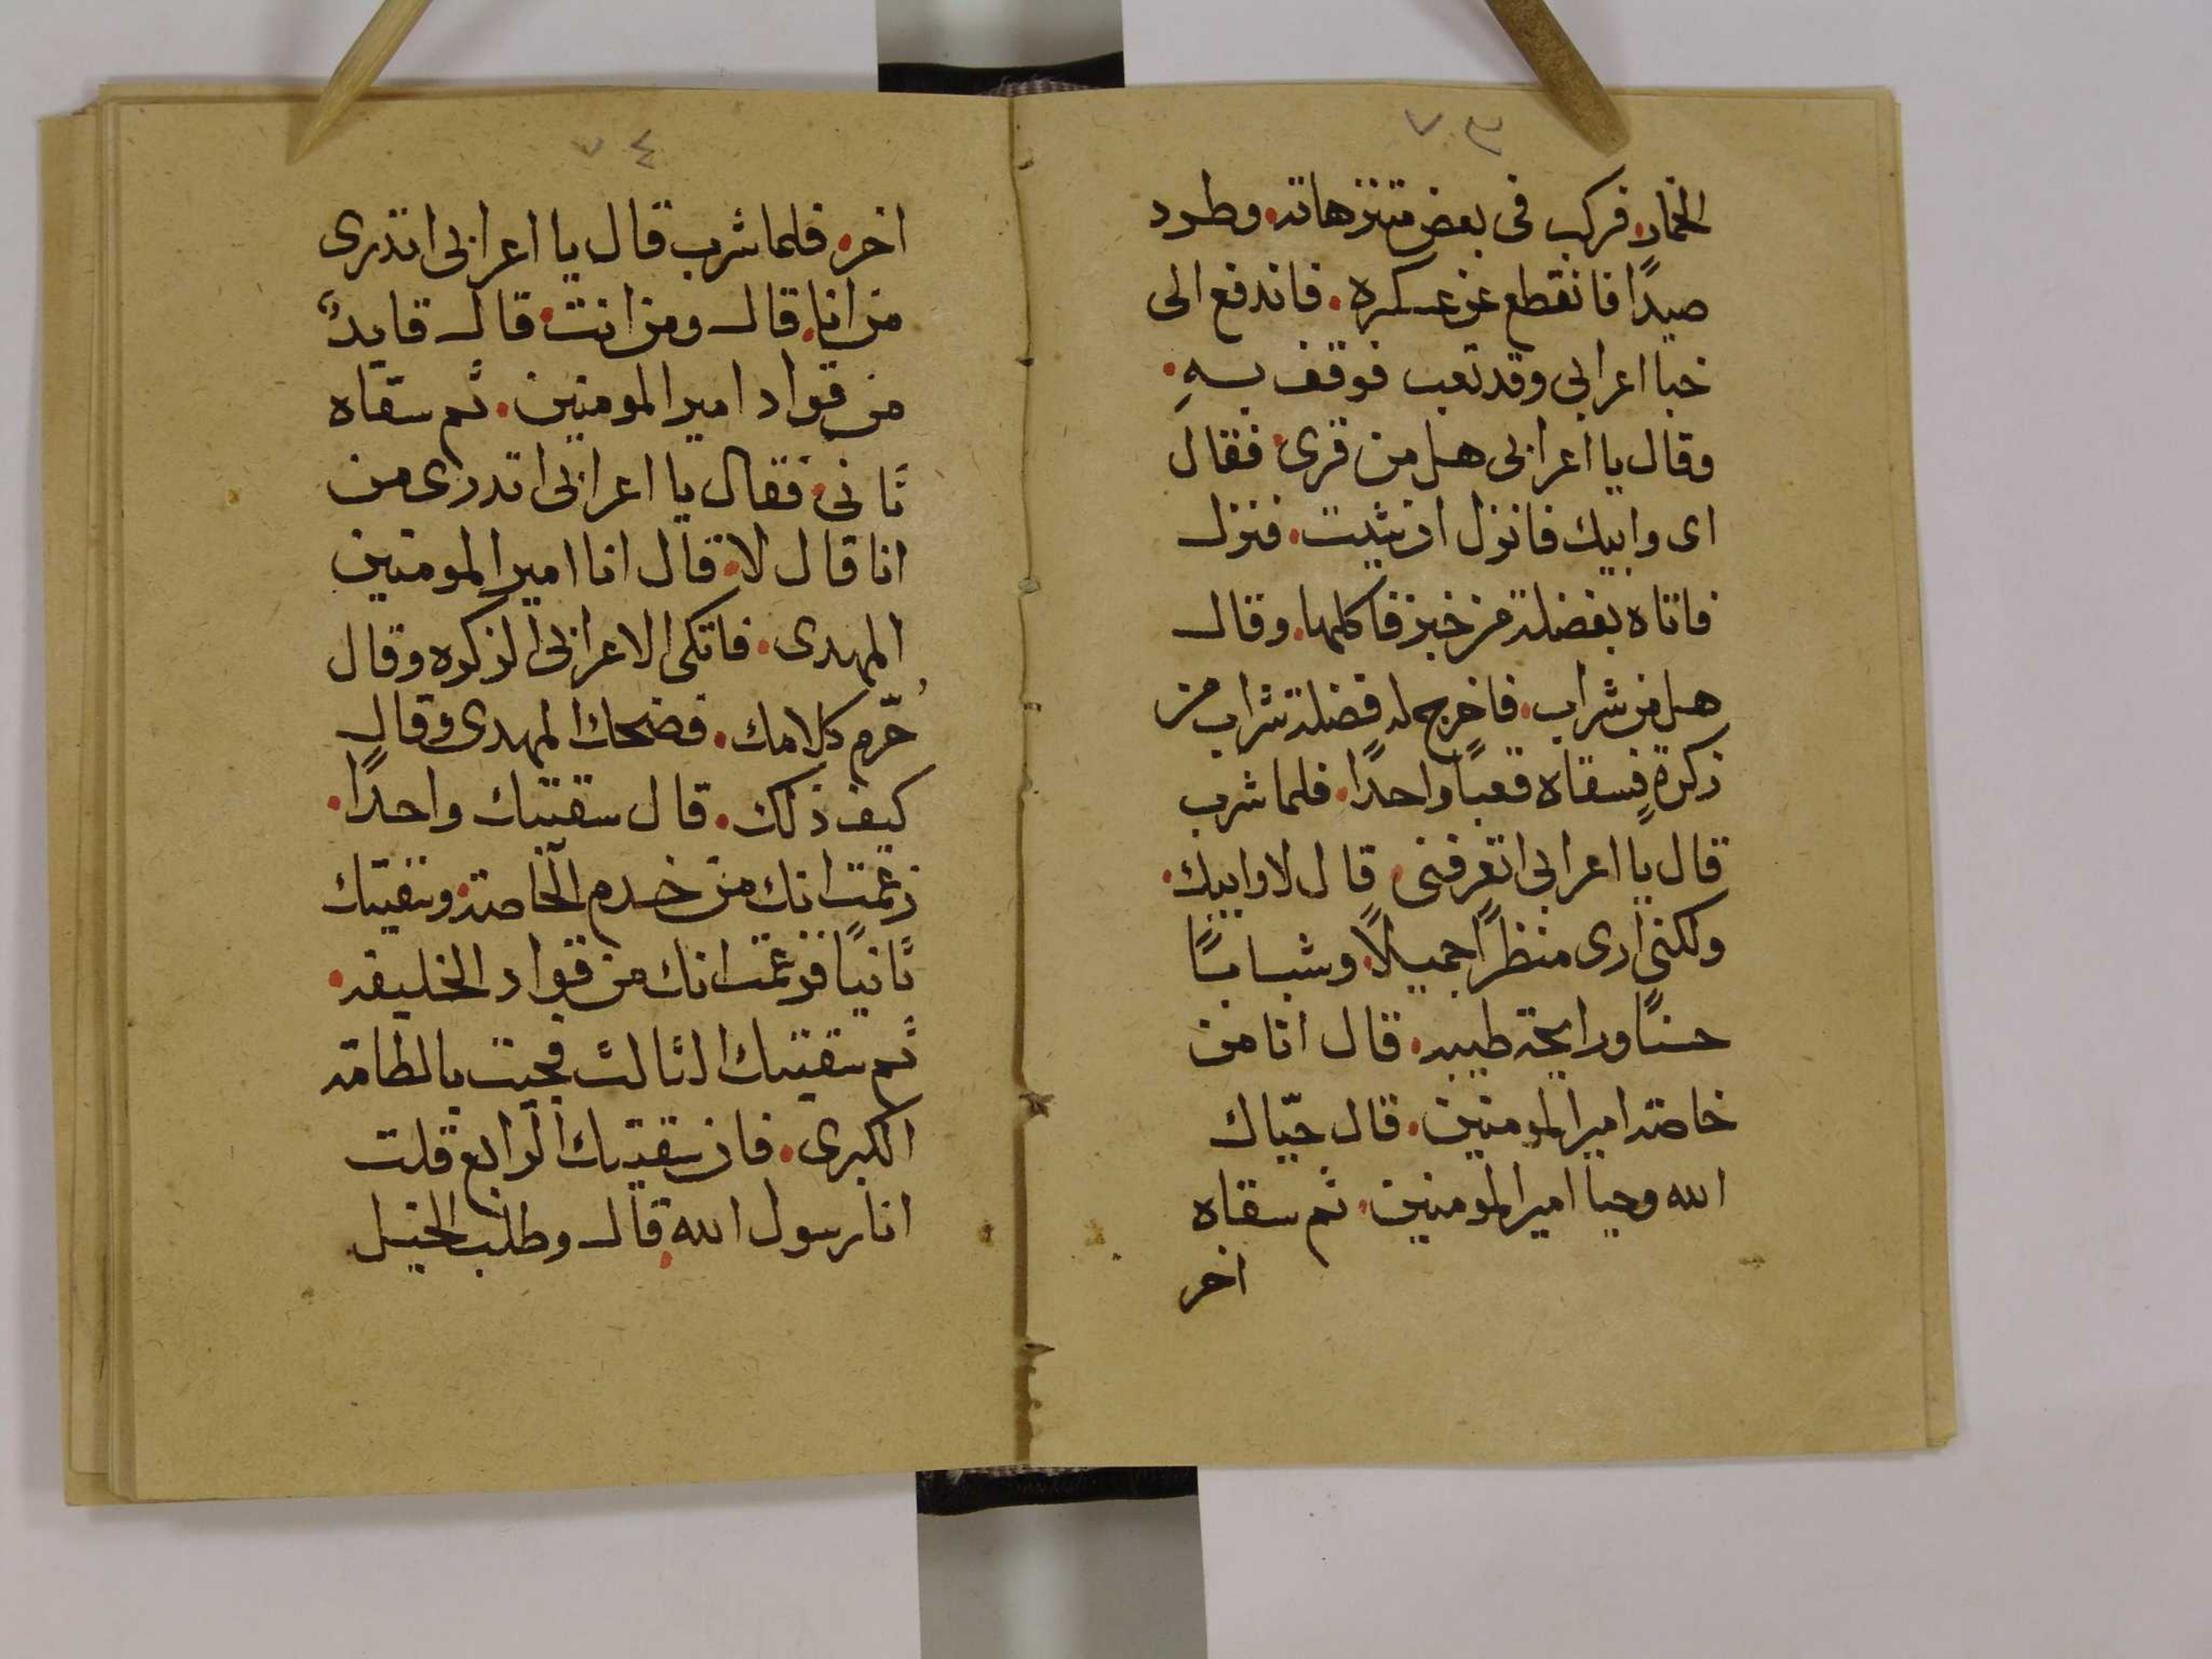 ٧٣
الخمار. فركب فى بعض متنزهاته. وطرد
صيدًا فانقطع عن عسكره. فاندفع الى
خبا اعرابى وقد تعب فوقف بهِ.
وقال يا اعرابى هل من قرى. فقال
اى وابيك فانزل ان شيت. فنزل
فاتاه بفضلة من خبز فاكلها. وقال
هل من شراب. فاخرج له فضلة شراب من
زكرةٍ فسقاه قعبًا واحدًا. فلما شرب
قال يا اعرابى اتعرفنى. قال لا وابيك.
ولكننى ارى منظرًا جميلًا. وشبابًا
حسنًا ورايحة طيبه. قال انا من
خاصة امير المومنين. قال حيّاك
الله وحيا امير المومنين. ثم سقاه
اخر
٧٤
اخر. فلما شرب قال يا اعرابى اتدرى
من انا. قال ومن انت. قال قايدٌ
من قواد امير المومنين. ثم سقاه
ثانى. فقال يا اعرابى اتدرى من
انا قال لا. قال انا امير المومنين
المهدى. فاتكى الاعرابى الزكوه وقال
حّرم كلامك. فضحك المهدى وقال
كيف ذلك. قال سقيتك واحدًا.
زعمت انك من خدم الخاصة. وسقيتك
ثانيًا فزعمت انك من قواد الخليفه.
ثم سقيتك الثالث فجيت بالطامة
الكبرى. فان سقيتك الرابع قلت
انا رسول الله. قال وطلب الخيل